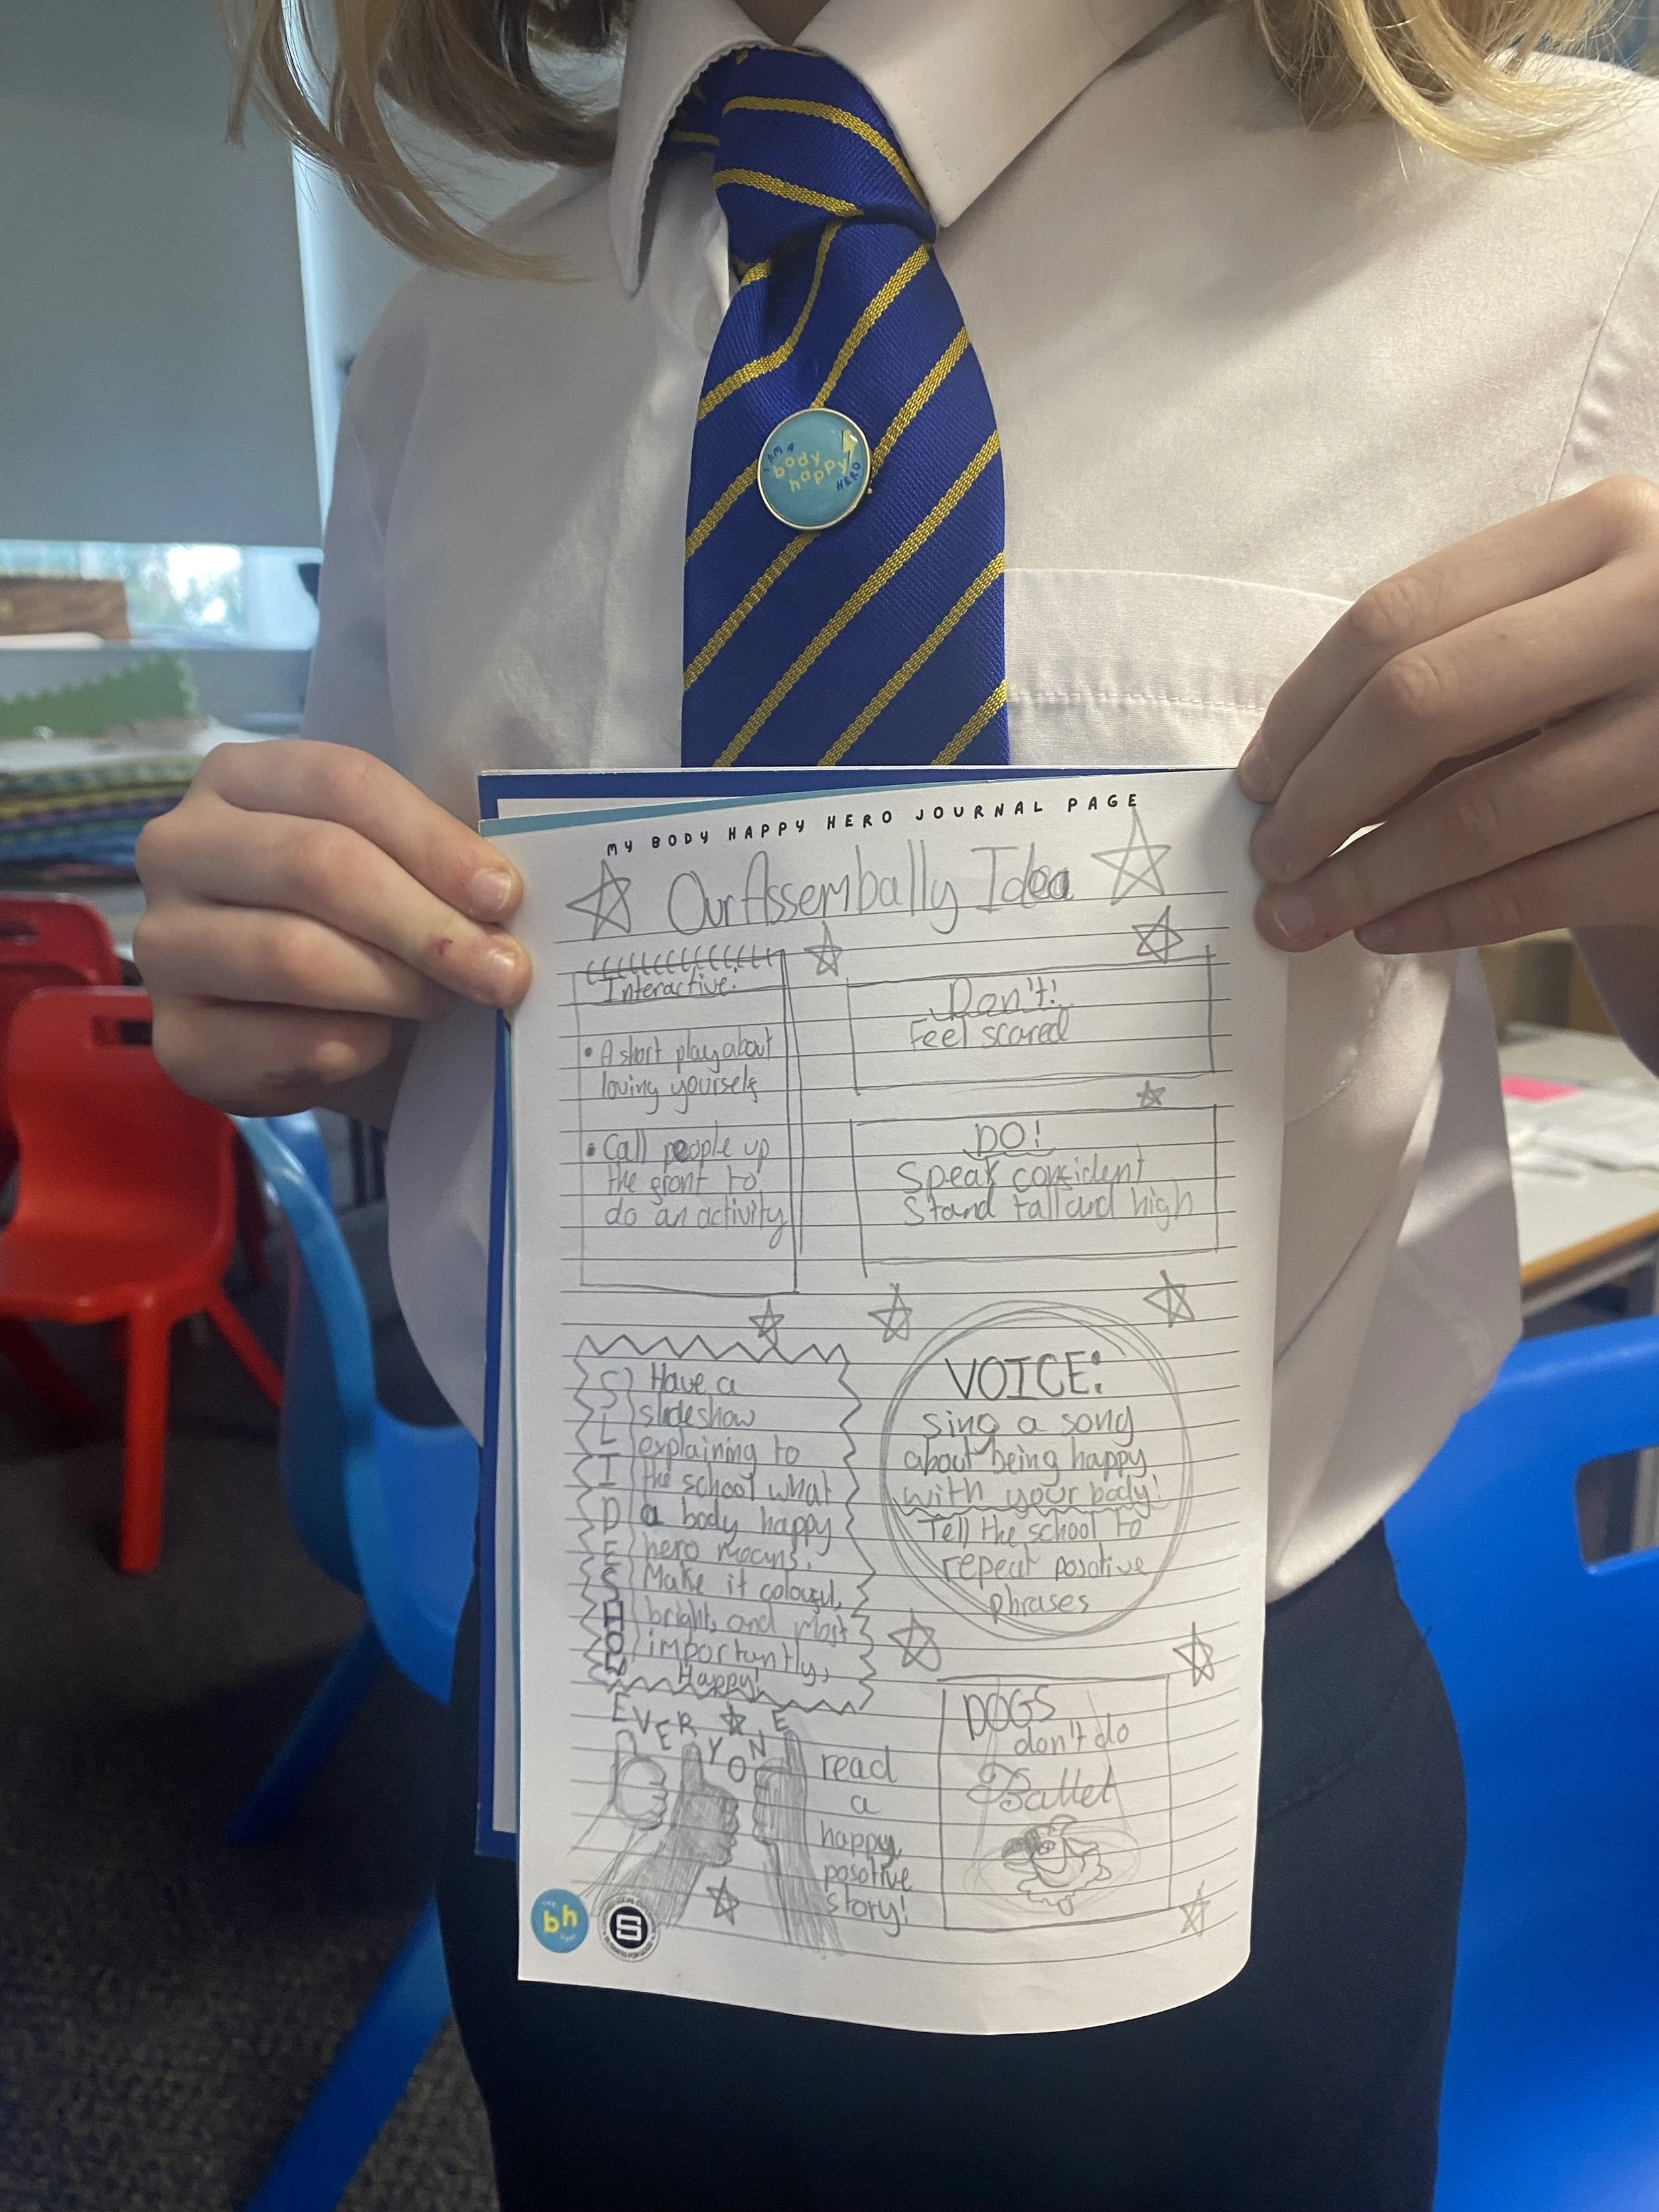 I AM A
body
happy
HERO
MY BODY HAPPY HERO JOURNAL PAGE
Our Assembally Idea
Interactive:
• A short play about
loving yourself
• Call people up
the front to
do an activity
Don't!
Feel scared
DO!
Speak confident
Stand tall and high
SLIDESHOW
Have a
slideshow
explaining to
the school what
a body happy
hero means.
Make it colourful,
bright, and most
importantly,
Happy!
VOICE:
Sing a song
about being happy
with your body!
Tell the school to
repeat posotive
phrases
EVERYONE
read
a
happy,
posotive
story!
DOGS
don't do
Ballet
bh
S